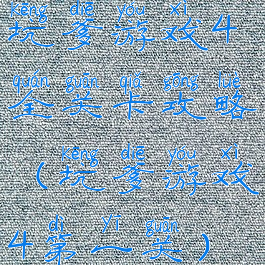 kēng diē yóu xì
坑爹游戏4
quán guān qiǎ gōng lüè
全关卡攻略
kēng diē yóu xì
(坑爹游戏
dì yī guān
4第一关)